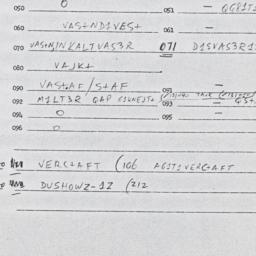 050 O 051 — QGPIT
060 VAS+NDIVES+ 061 —
070 VAS+N/NKALIVAS3R 071 DISVAS3R1
080 VAJK+
090 VAS+AF/S+AF 091 —
092 MILT3R QAP 093 — 
094 O 095 —
096 O
VERC+AFT (106 AOSTIVERC+AFT
DUSHOWZ-1Z (212